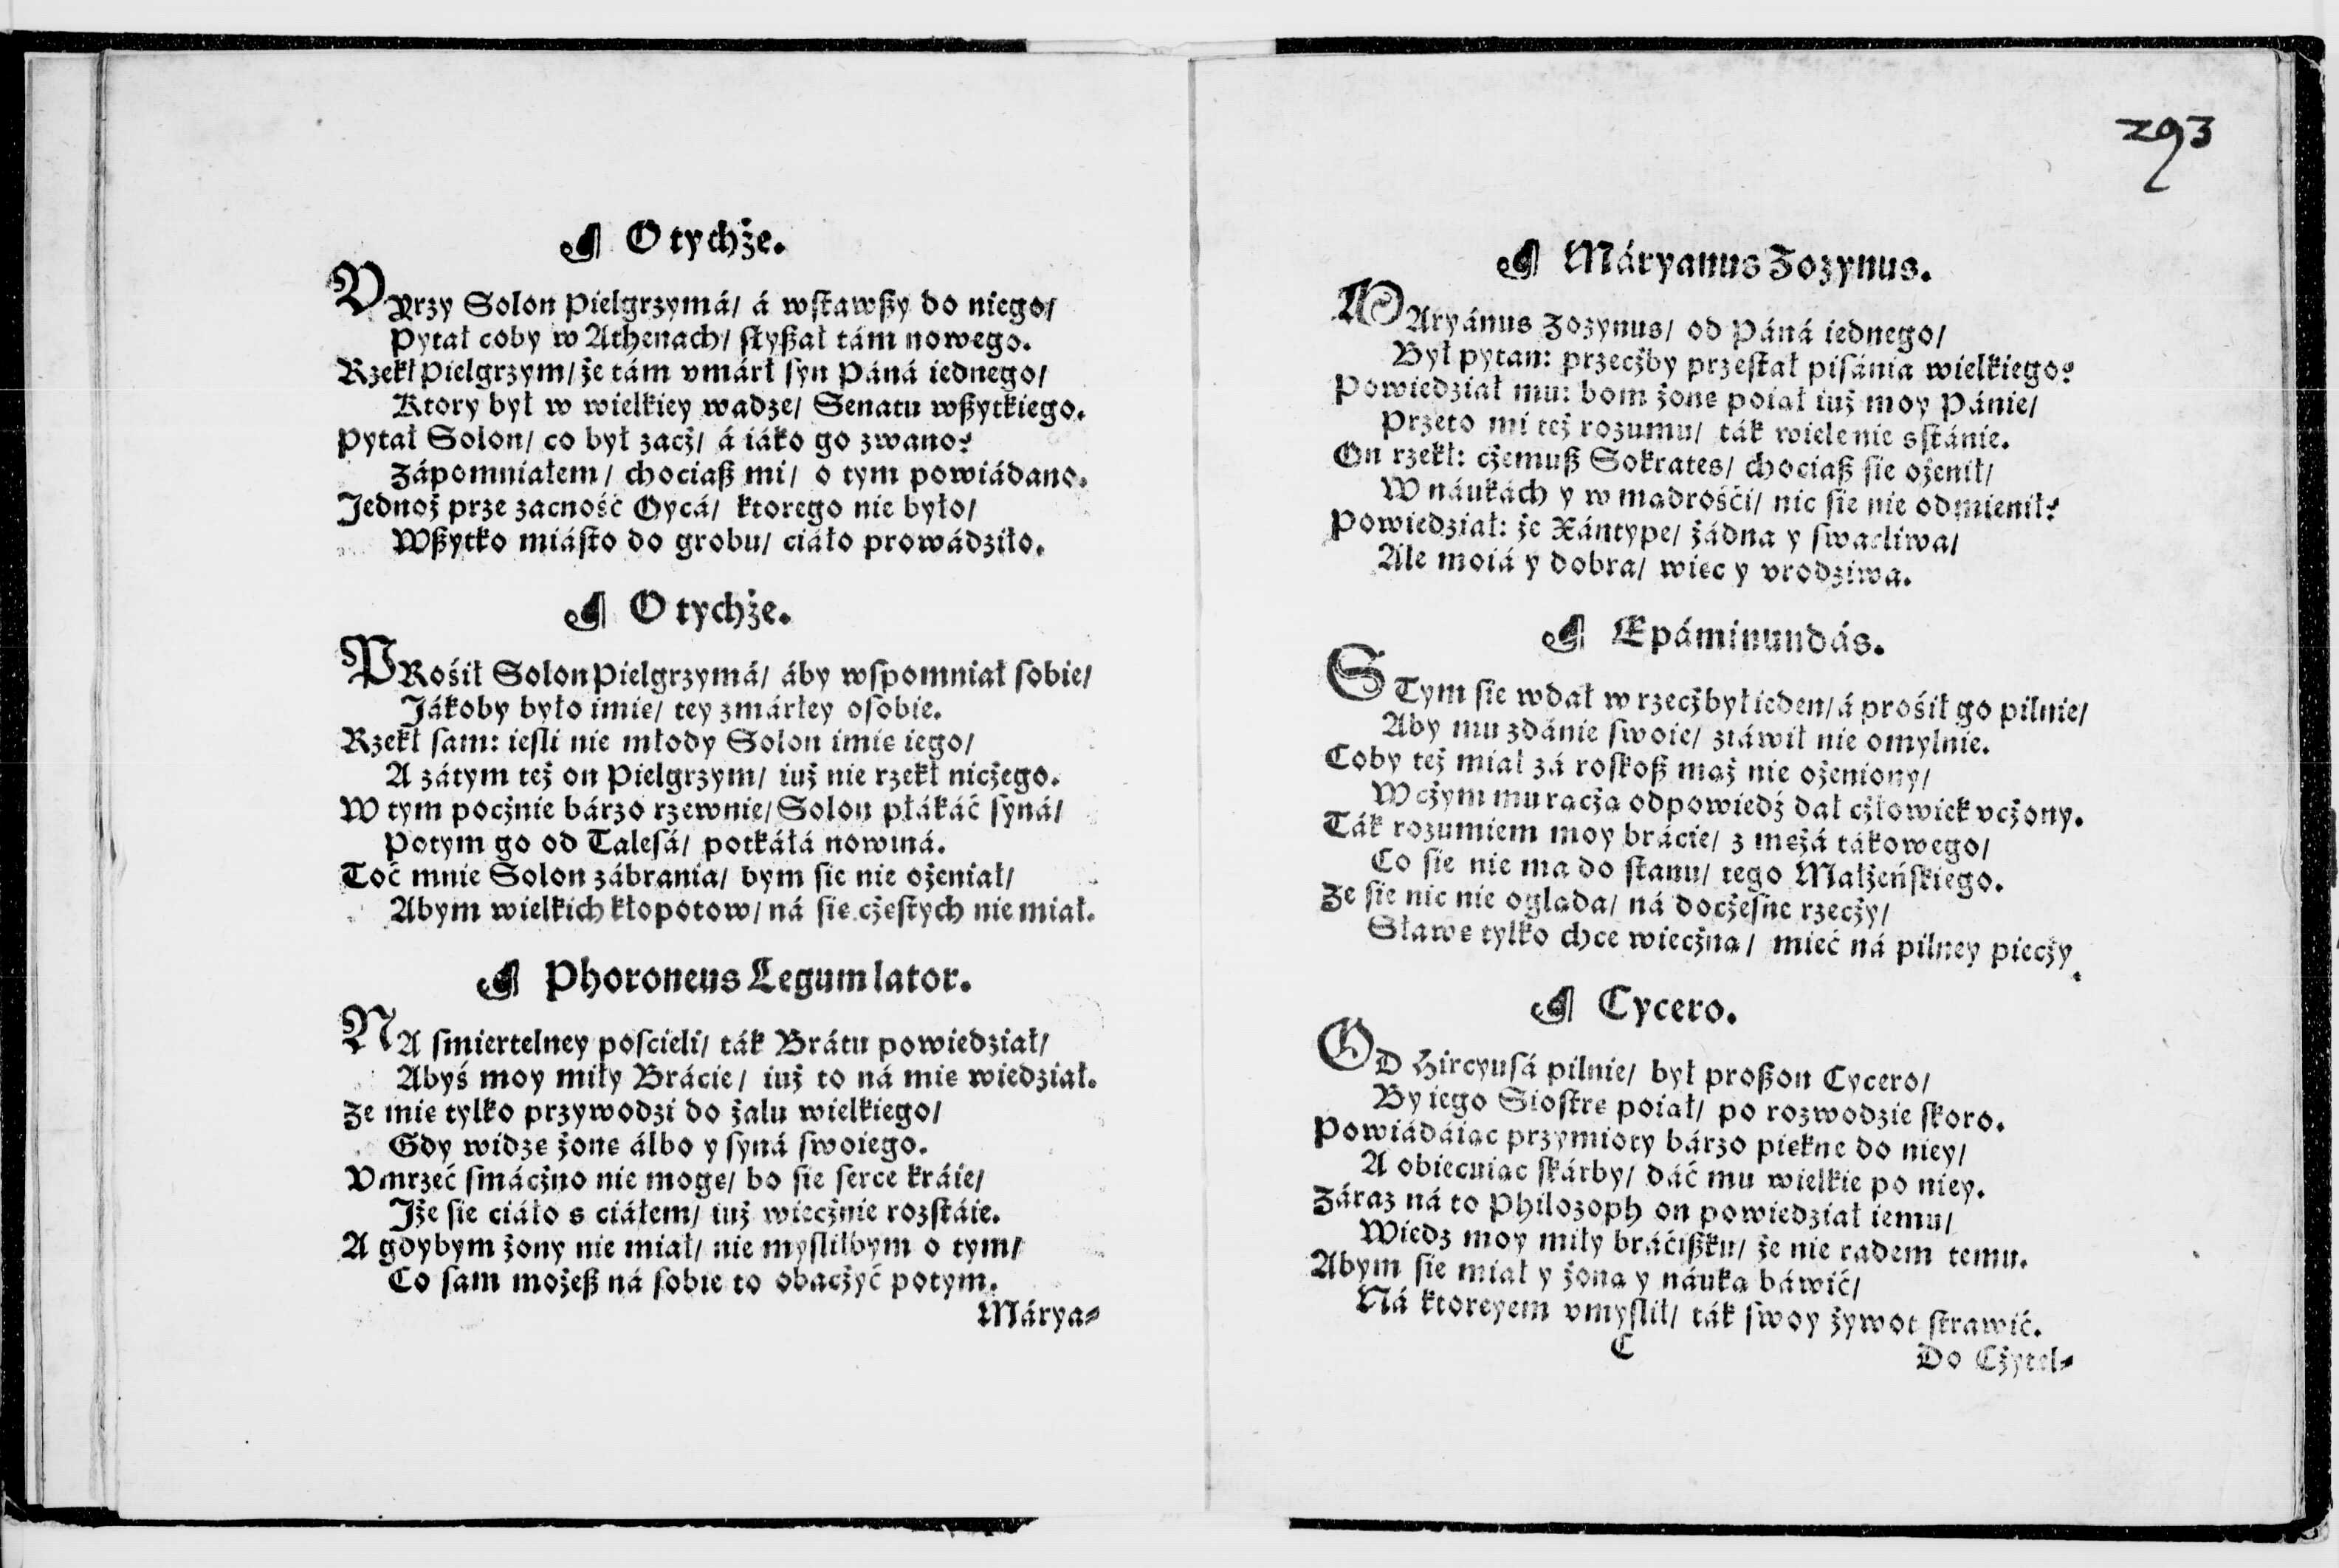 O tychże.
VYrzy Solon Pielgrzymá/ á wstawßy do niego/
Pytał coby w Athenach/ słyßał tám nowego.
Rzekł Pielgrzym/ że tám vmárł syn Páná iednego/
Ktory był w wielkiey wadze/ Senatu wßytkiego.
Pytał Solon/ co był zacż/ á iáko go zwano?
Zápomniałem/ chociaß mi/ o tym powiádano.
Jednoż prze zacność Oycá/ ktorego nie było/
Wßytko miásto do grobu/ ciáło prowádziło.
O tychże.
PRośił Solon Pielgrzymá/ áby wspomniał sobie/
Jákoby było imie/ tey zmárłey osobie.
Rzekł sam: iesli nie młody Solon imie iego/
A zátym też on Pielgrzym/ iuż nie rzekł nicżego.
W tym pocżnie bárzo rzewnie/ Solon płákáć syná/
Potym go od Talesá/ potkáłá nowiná.
Toć mnie Solon zábrania/ bym sie nie ożeniał/
Abym wielkich kłopotow/ ná sie cżestych nie miał.
Phoroneus Legum lator.
NA smiertelney poscieli/ ták Brátu powiedział/
Abyś moy miły Brácie/ iuż to ná mie wiedział.
Ze mie tylko przywodzi do żalu wielkiego/
Gdy widze żone álbo y syná swoiego.
Vmrzeć smácżno nie moge/ bo sie serce kráie/
Jże sie ciáło s ciáłem/ iuż wiecżnie rozstáie.
A gdybym żony nie miał/ nie myslilbym o tym/
Co sam możeß ná sobie to obacżyć potym.
Márya-
293
Máryanus Zozynus.
MAryánus Zozynus/ od Páná iednego/
Był pytan: przecżby przestał pisánia wielkiego?
Powiedział mu: bom żone poiał iuż moy Pánie/
Przeto mi też rozumu/ ták wiele nie sstánie.
On rzekł: cżemuß Sokrates/ chociaß sie ożenił/
W náukách y w madrośći/ nic sie nie odmienił?
Powiedział: że Xántype/ żádna y swarliwa/
Ale moiá y dobra/ wiec y vrodziwa.
Epáminundás.
STym sie wdał w rzecż był ieden/ á prośił go pilnie/
Aby mu zdánie swoie/ ziáwił nie omylnie.
Coby też miał zá roskoß maż nie ożeniony/
W cżym mu racża odpowiedź dał cżłowiek vcżony.
Ták rozumiem moy brácie/ z meżá tákowego/
Co sie nie ma do stanu/ tego Małżeńskiego.
Ze sie nic nie oglada/ ná docżesne rzecży/
Sławe tylko chce wiecżna/ mieć ná pilney piecży.
Cycero.
OD Hircyusá pilnie/ był proßon Cycero/
By iego Siostre poiał/ po rozwodzie skoro.
Powiádáiac przymioty bárzo piekne do niey/
A obiecuiac skárby/ dáć mu wielkie po niey.
Záraz ná to Philozoph on powiedział iemu/
Wiedz moy miły bráćißku/ że nie radem temu.
Abym sie miał y żona y náuka báwić/
Ná ktoreyem vmyslił/ ták swoy żywot strawić.
C
Do Cżytel-